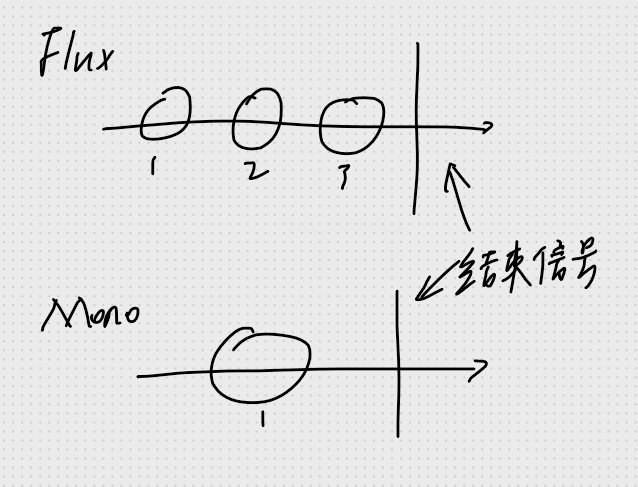 Flux
1 2 3
结束信号
Mono
1